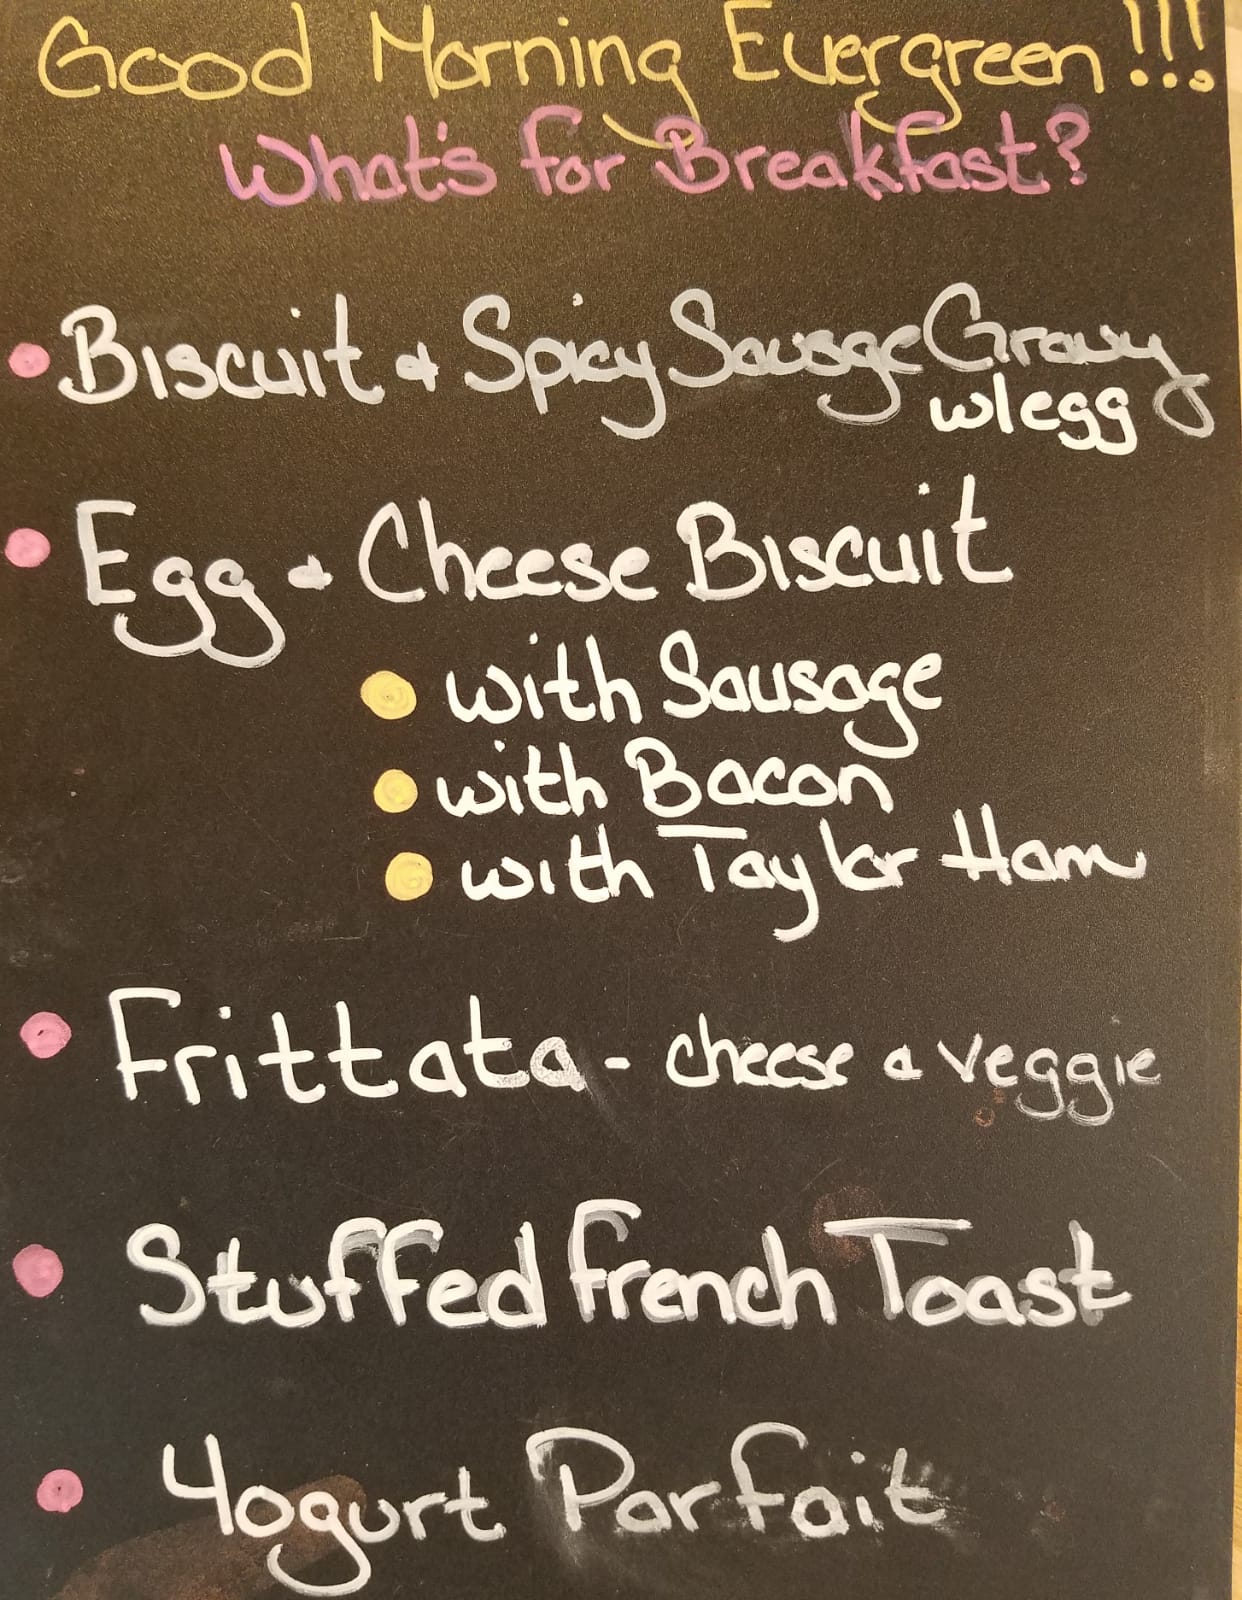 Good Morning Evergreen!!!
What's for Breakfast?
• Biscuit & Spicy Sausge Gravy
w/egg
• Egg & Cheese Biscuit
• with Sausage
• with Bacon
• with Taylor Ham
• Frittata - cheese & veggie
• Stuffed French Toast
• Yogurt Parfait